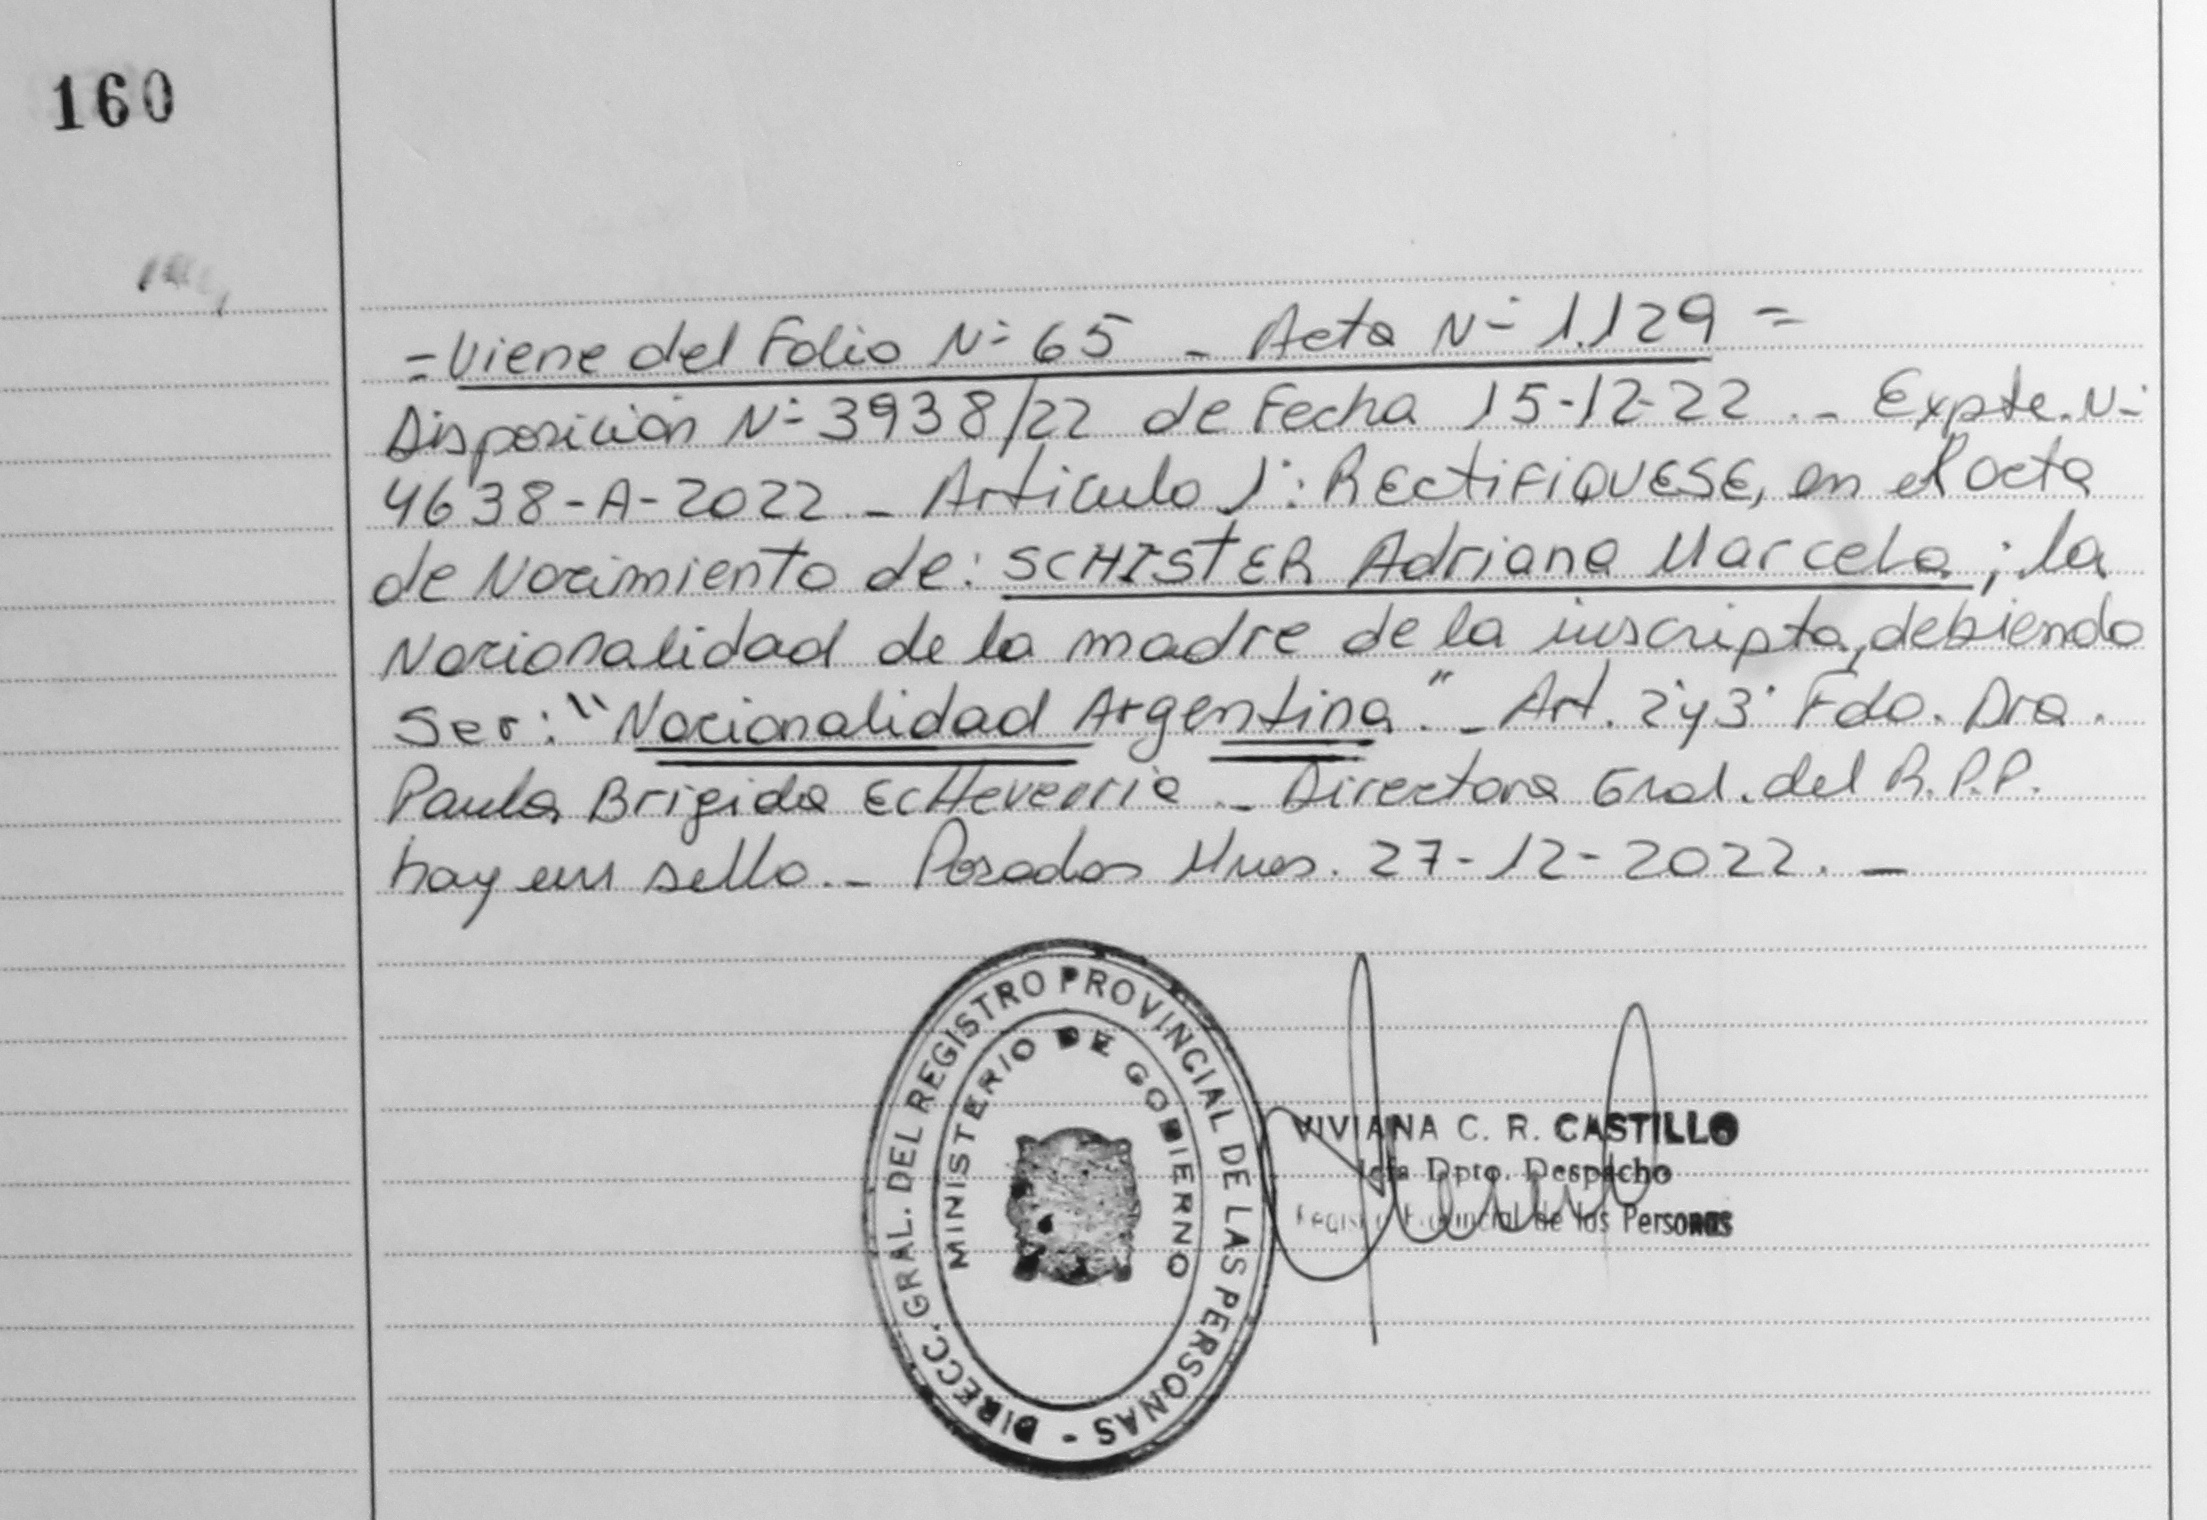 160
= Viene del Folio N° 65 - Acta N° 1.129 =
Disposición N° 3938/22 de Fecha 15-12-22 .- Expte. N°
4638-A-2022 - Artículo 1°: RECTIFIQUESE, en el acta
de Nacimiento de: SCHISTER Adriana Marcela; la
Nacionalidad de la madre de la inscripta, debiendo
Ser: "Nacionalidad Argentina." - Art. 2° y 3° Fdo. Dra.
Paula Brigida Echeverria - Directora Gral. del R.P.P.
hay un sello. - Posadas Mnes. 27-12-2022. -
DIRECC. GRAL. DEL REGISTRO PROVINCIAL DE LAS PERSONAS -
MINISTERIO DE GOBIERNO
VIVIANA C. R. CASTILLO
Jefa Dpto. Despacho
Registro Provincial de las Personas